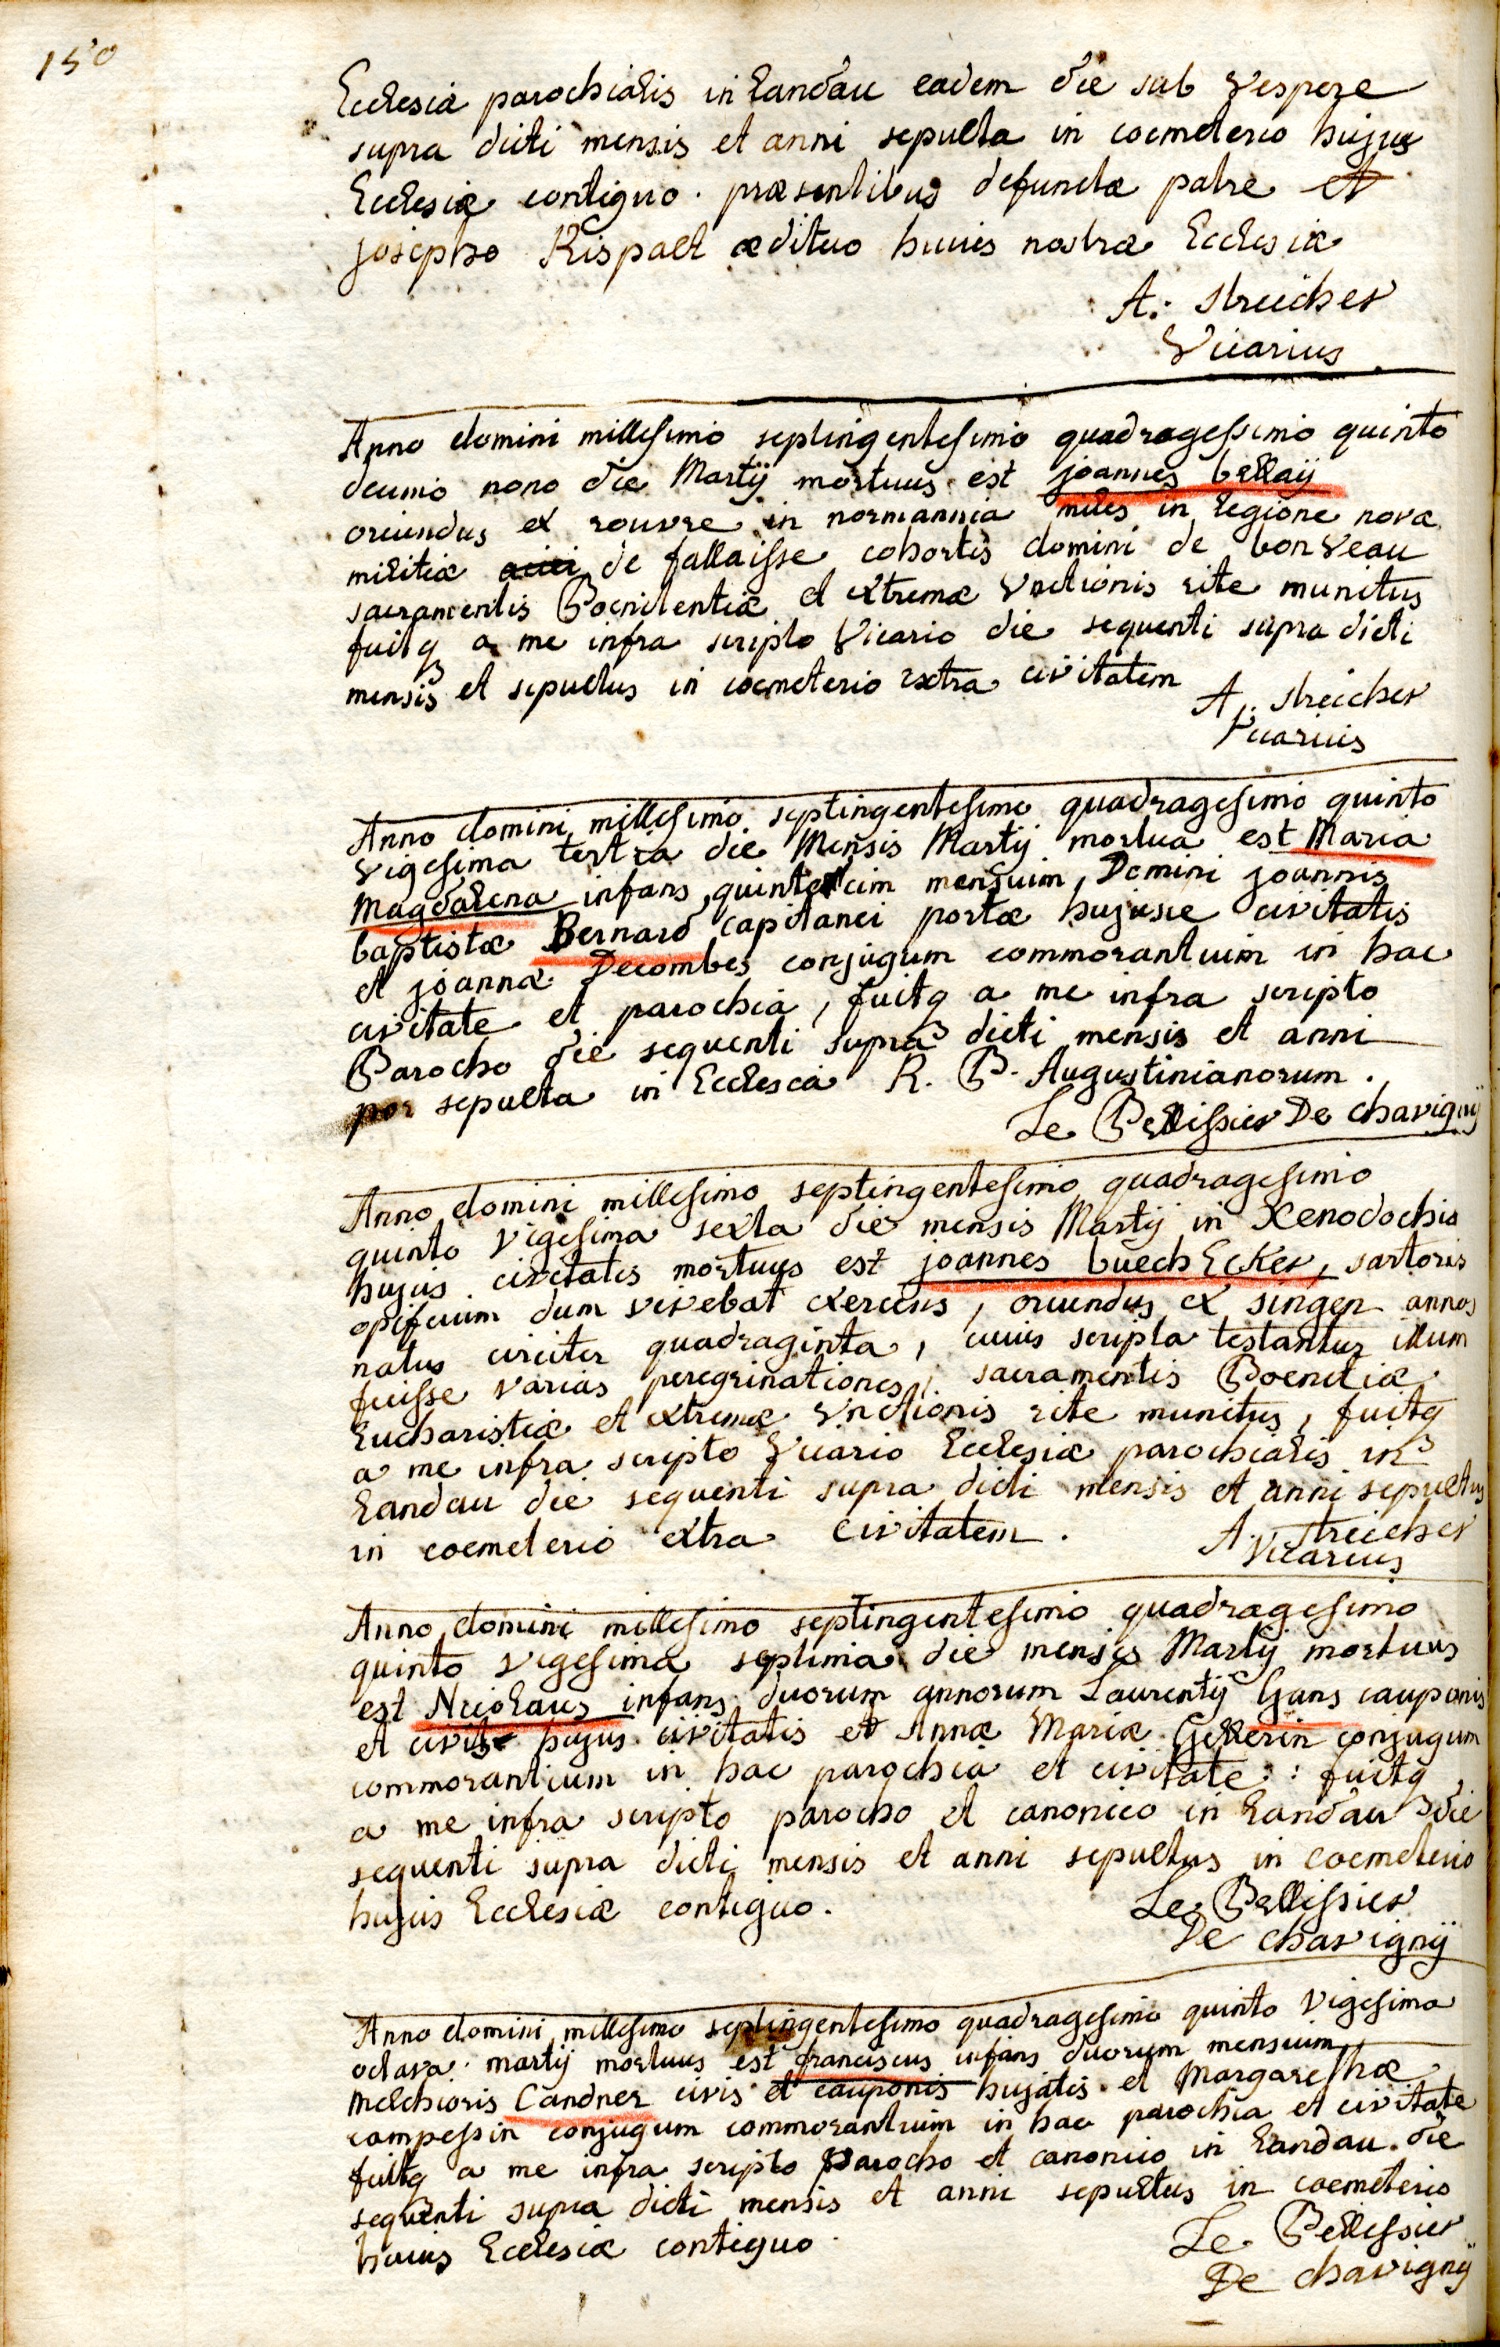 150
Ecclesiæ parochialis in Landau eadem die sub vespere
supra dicti mensis et anni sepulta in coemeterio hujus
Ecclesiæ contiguo. præsentibus defunctæ patre et
josepho Rispaet ædituo huius nostræ Ecclesiæ
A. Streicher
Vicarius
Anno domini millesimo septingentesimo quadragessimo quinto
decimo nono die Martij mortuus est joannes bellaij
oriundus ex rouvre in normannia miles in legione novæ
militiæ de fallaisse cohortis domini de bonveau
sacramentis Poenitentiæ et extremæ Unctionis rite munitus
fuitq a me infra scripto Vicario die sequenti supra dicti
mensis et sepultus in coemeterio extra civitatem
A. Streicher
Vicarius
Anno domini millesimo septingentesimo quadragesimo quinto
vigesima tertia die Mensis Martij mortua est Maria
Magdalena infans quintdecim mensuim, Domini joannis
baptistæ Bernard capitanei portæ hujusce civitatis
et joannæ Decombes conjugum commorantuim in hac
civitate et parochia, fuitq a me infra scripto
Parocho die sequenti supra dicti mensis et anni
sepulta in Ecclesia R. P. Augustinianorum.
Le Pellissier De chavignij
Anno domini millesimo septingentesimo quadragesimo
quinto vigesima sexta die mensis Martij in Xenodochio
hujus civitatis mortuus est joannes buechEcker, sartoris
opificium dum vivebat exercens, oriundus ex singen annos
natus circiter quadraginta, cuius scripta testantur illum
fuisse varias peregrinationes, sacramentis Poenitiæ
Eucharistiæ et extremæ Unctionis rite munitus, fuitq
a me infra scripto Vicario Ecclesiæ parochialis in
Landau die sequenti supra dicti mensis et anni sepultus
in coemeterio extra Civitatem.
A. Streicher
Vicarius
Anno domini millesimo septingentesimo quadragesimo
quinto vigesima septima die mensis Martij mortuus
est Nicolaus infans duorum annorum Laurentij Gans cauponis
et civis hujus civitatis et Annæ Mariæ Gellerin conjugum
commorantium in hac parochia et civitate: fuitq
a me infra scripto parocho et canonico in Landau die
sequenti supra dicti mensis et anni sepultus in coemeterio
hujus Ecclesiæ contiguo.
Le Pellissier
De chavignij
Anno domini millesimo septingentesimo quadragesimo quinto Vigesima
octava martij mortuus est franciscus infans duorum mensuim
Melchioris Candner civis et cauponis hujatis et Margarethæ
campessin conjugum commorantium in hac parochia et civitate
fuitq a me infra scripto Parocho et canonico in Landau die
sequenti supra dicti mensis et anni sepultus in coemeterio
huius Ecclesiæ contiguo
Le Pellissier
De chavignij